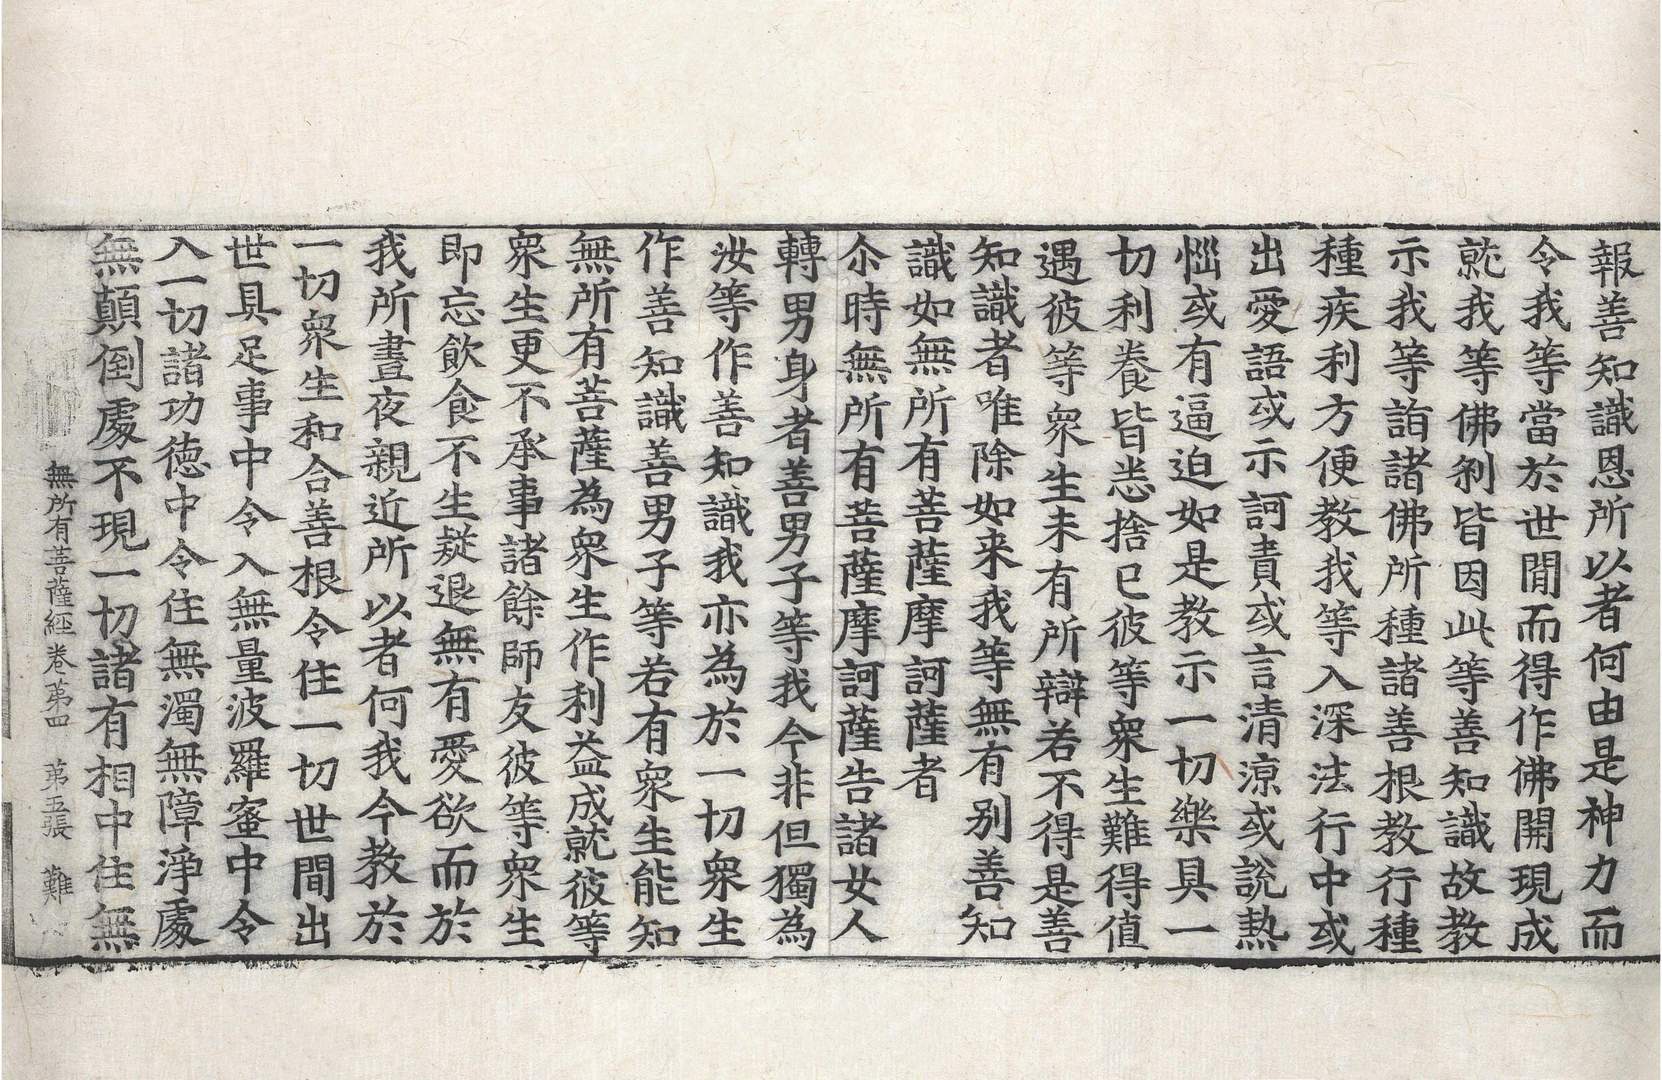 報善知識恩所以者何由是神力而
令我等當於世間而得作佛開現成
就我等佛刹皆因此等善知識故教
示我等詣諸佛所種諸善根教行種
種疾利方便教我等入深法行中或
出愛語或示訶責或言清涼或說熱
惱或有逼迫如是教示一切樂具一
切利養皆悉捨已彼等衆生難得值
遇彼等衆生未有所辯若不得是善
知識者唯除如来我等無有別善知
識如無所有菩薩摩訶薩者
尒時無所有菩薩摩訶薩告諸女人
轉男身者善男子等我今非但獨為
汝等作善知識我亦為於一切衆生
作善知識善男子等若有衆生能知
無所有菩薩為衆生作利益成就彼等
衆生更不承事諸餘師友彼等衆生
即忘飲食不生疑退無有愛欲而於
我所晝夜親近所以者何我今教於
一切衆生和合善根令住一切世間出
世具足事中令入無量波羅蜜中令
入一切諸功德中令住無濁無障淨處
無顛倒處不現一切諸有相中住無
無所有菩薩經卷第四 第五張 難